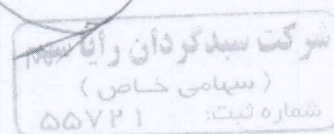 شرکت سبدگردان رایا سهم
(سهامی خاص)
شماره ثبت: ۵۵۷۲۱